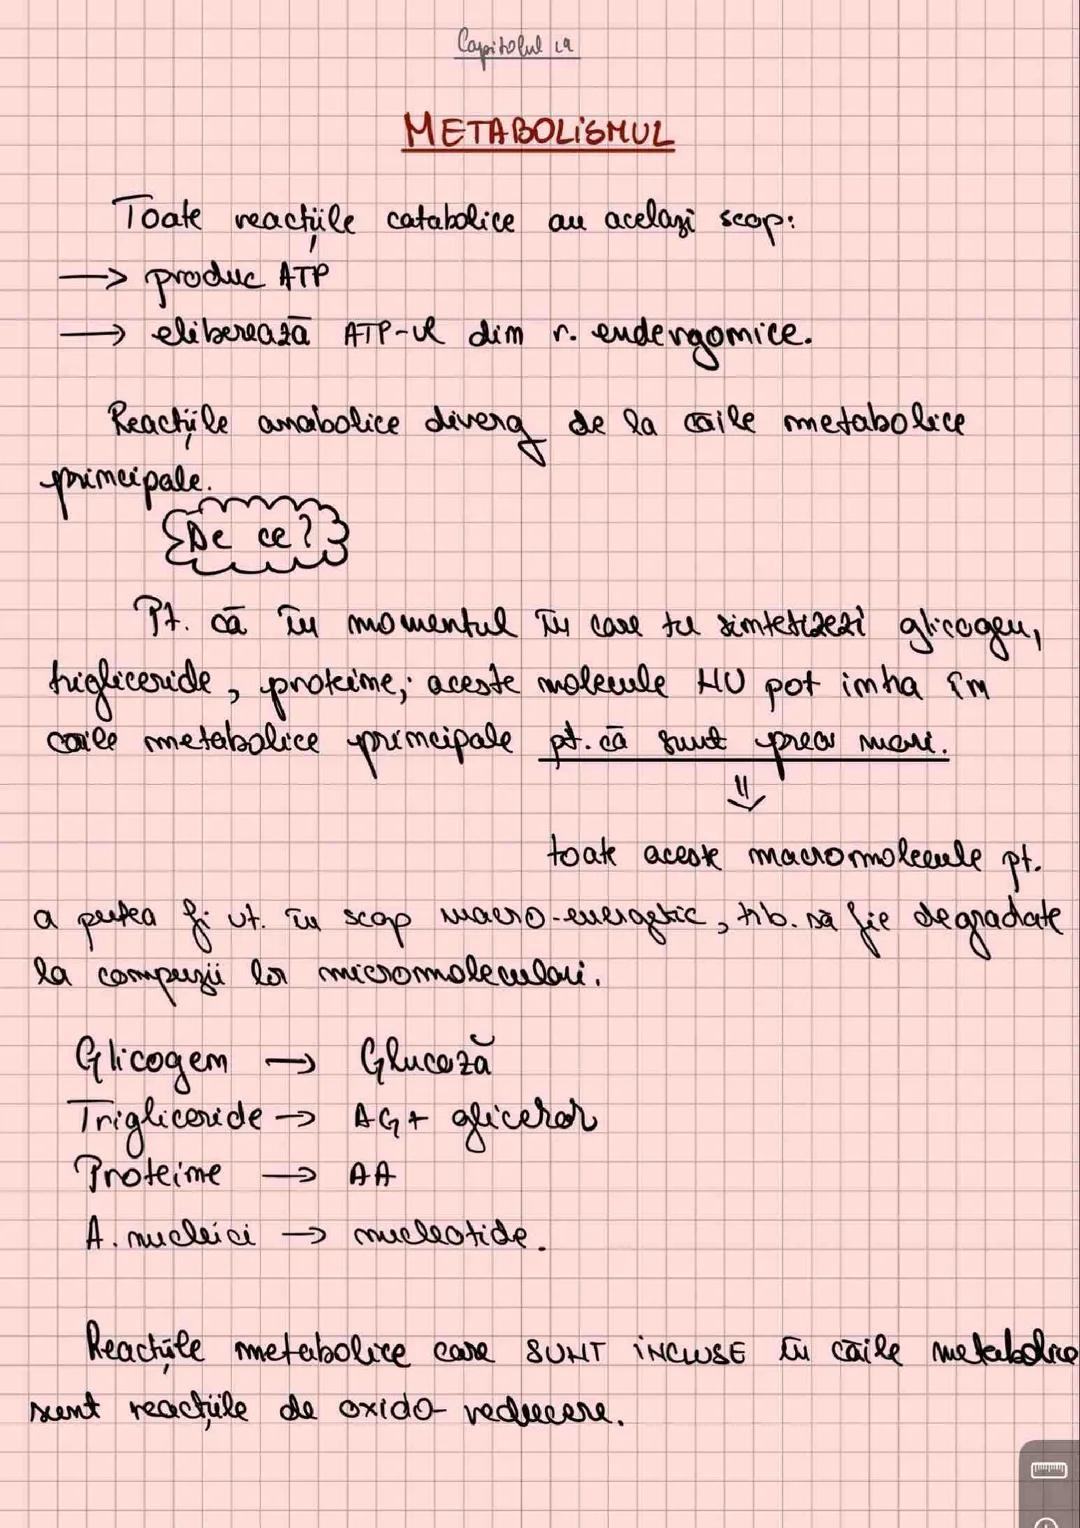 Capitolul 19
METABOLISMUL
Toate reacțiile catabolice au același scop:
→ produc ATP
→ eliberează ATP-ul din r. endergonice.
Reacțiile anabolice diverg de la căile metabolice
principale.
De ce?
Pt. că în momentul în care tu sintetizezi glicogen,
trigliceride, proteine, aceste molecule NU pot intra în
căile metabolice principale pt. că sunt prea mari.
⇓
toate aceste macromolecule pt.
a putea fi ut. în scop macro-energetic, trb. să fie degradate
la compuzii lor micromoleculari.
Glicogen → Glucoză
Trigliceride → AG + glicerol
Proteine → AA
A. nucleici → nucleotide.
Reacțiile metabolice care SUNT iNCLUSE în căile metabolice
sunt reacțiile de oxido-reducere.